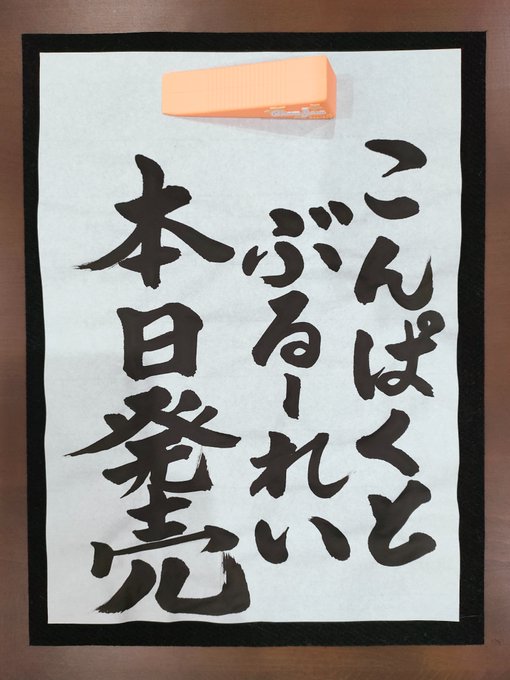 こんぱくと
ぶるーれい
本日発売